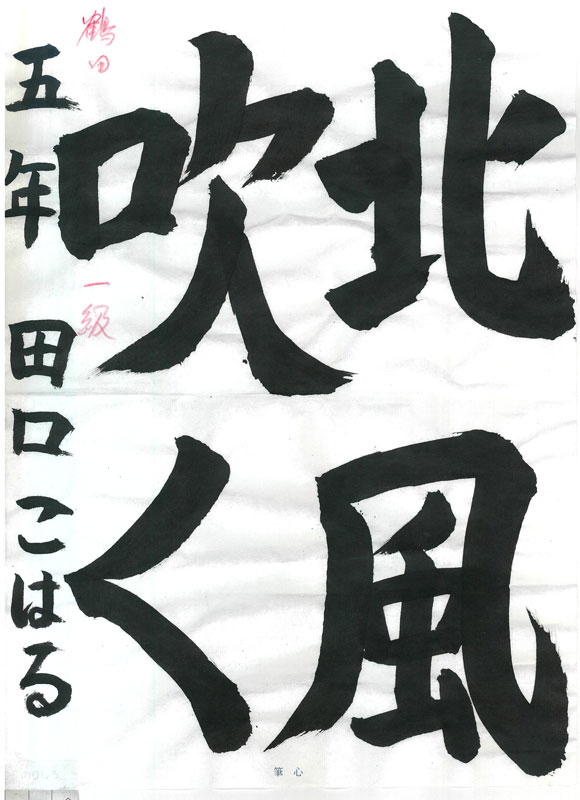 北風
吹く
五年 田口こはる
鶴田
一級
筆心